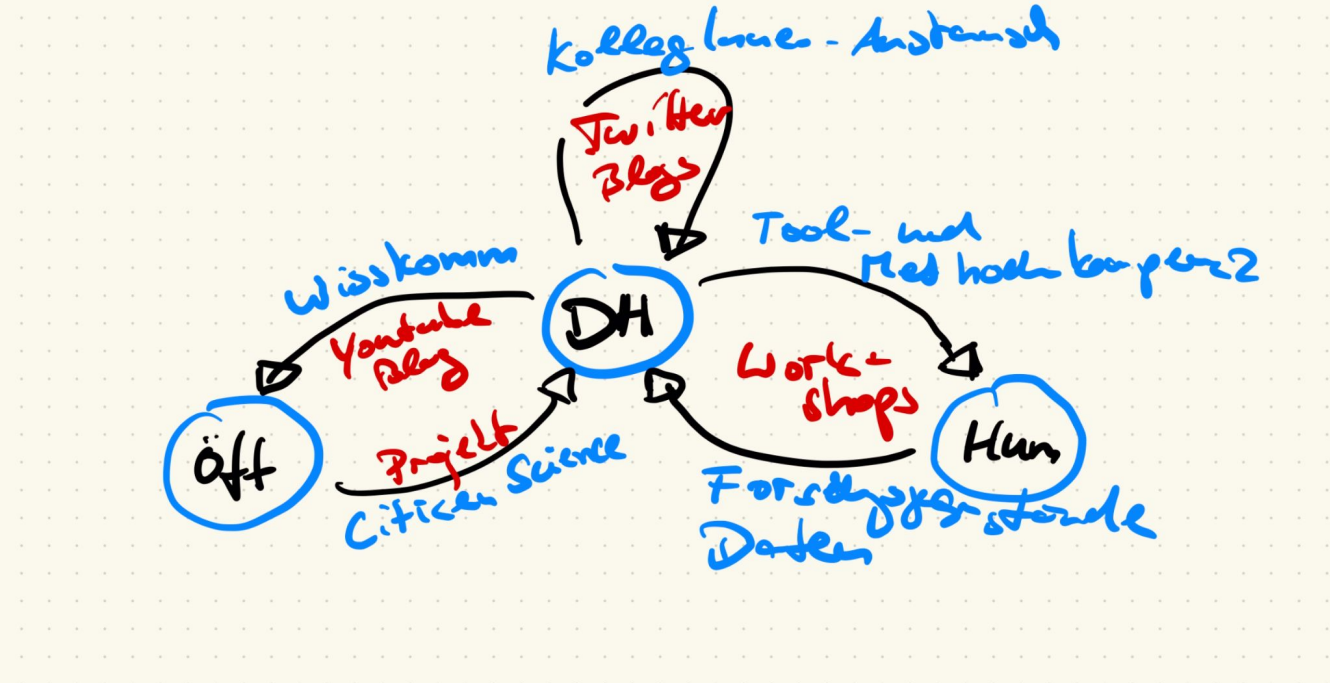 KollegInnen-Austausch
Twitter
Blogs
Tool- und
Methodenkompetenz
Wisskomm
DH
Youtube
Blog
Work-
shops
Öff
Projekt
Citizen Science
Hum
Forschungsgegenstände
Daten